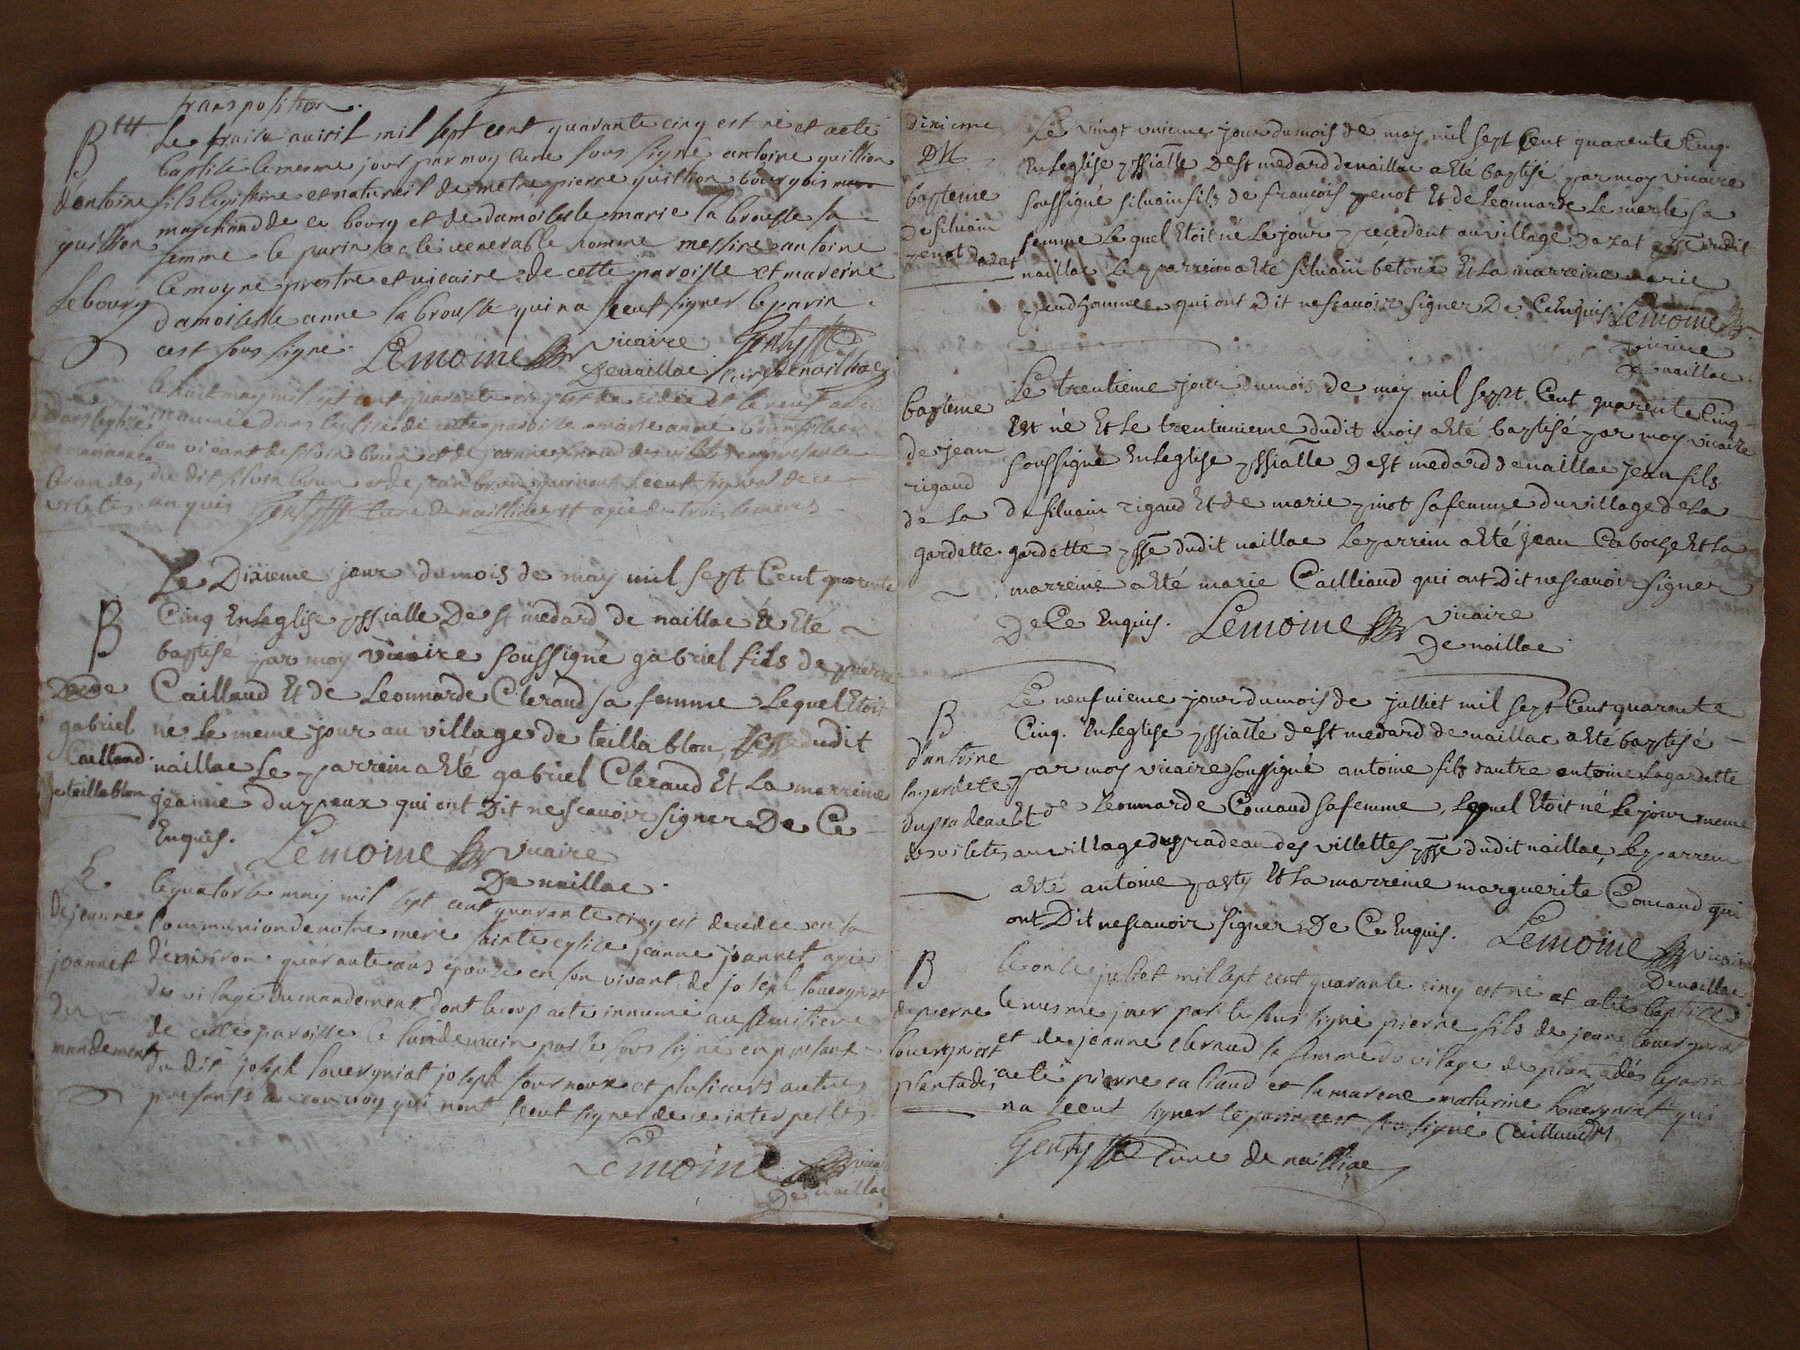 transposition.
B
d'antoine
guillion
Le bourg
Le avril mil sept cent quarante cinq est né et a eté
baptisé le mesme jour par moy curé sous signé antoine guillion
fils legitime et naturel de metre pierre guillion bourgois
marchand de ce bourg et de damoiselle marie la brousse sa
femme le parin a eté venerable homme messire antoine
lemoyne prestre et vicaire de cette paroisse et mareine
damoiselle anne la brousse qui na sceut signer le parin
cest sous signé.
Lemoine vicaire
Denaillac curé de naillac
le huit may mil sept cent quarante cinq est decedée et le neuf a eté
inhumée dans leglise de cette paroisse marie anne brun fille
vivant de silvain brun et de
du dit silvain brun et de jean brun qui nont sceut signer de ce
enquis curé de naillac agée de trois
B
De
gabriel
Caillaud
de teillablou
Le Dixieme jour du mois de may mil sept Cent quarente
Cinq En Leglise pssialle De st medard de naillac a Eté
baptisé par moy vicaire soussigné gabriel fils de pierre
Caillaud Et de Leonnarde Cleraud sa femme Lequel Etoit
né Le meme jour au village de teillablou, psse dudit
naillac Le parrein a Eté gabriel Cleraud Et La marreine
jeanne dupeux qui ont Dit ne scavoir signer De Ce
Enquis.
Lemoine vicaire
De naillac.
E
de jeanne
joannet
du
mandement
le quatorze may mil sept cent quarante cinq est decedée en la
communion de notre mere sainte eglise jeanne joannet agée
d'environ quarante ans epouze en son vivant de joseph louvergniat
du vilage du mandement dont le corp a eté innumé au simitiere
de cette paroisse le landemain par le sous signé en presance
du dit joseph louvergniat joseph fournoux et plusieurs autres
presents au convoy qui nont sceut signer de ce interpellés
Lemoine vicaire
De naillac
dixieme
bapteme
De silvain
penot Dazat
Le vingt unieme jour du mois de may mil sept Cent quarente Cinq.
En Leglise pssialle De st medard de naillac a Eté baptisé par moy vicaire
soussigné silvain fils de francois penot Et de Leonnarde Le merle sa
femme Lequel Etoit né Le jour precedent au village Dazat psse dudit
naillac Le parrein a Eté silvain betoux Et La marreine marie
preudhomme qui ont Dit ne scavoir signer De Ce Enquis. Lemoine
vicaire
De naillac.
bapteme
de jean
rigaud
de La
gardette
Le trentieme jour du mois de may mil sept Cent quarente Cinq
Est né Et Le trentunieme dudit mois a Eté baptisé par moy vicaire
soussigné En Leglise pssialle De st medard de naillac jean fils
de silvain rigaud Et de marie pinot sa femme du village de La
gardette psse dudit naillac Le parrein a Eté jean Caboche Et La
marreine a Eté marie Cailliaud qui ont Dit ne scavoir signer
De Ce Enquis. Lemoine vicaire
De naillac.
B
d'antoine
lagardete
du pradeau
des viletes
Le neufvieme jour du mois de julliet mil sept Cent quarente
Cinq. En Leglise pssialle De st medard de naillac a Eté baptisé
par moy vicaire soussigné antoine fils d'autre antoine Lagardette
Et de Leonnarde Coucaud sa femme, Lequel Etoit né Le jour meme
au village du pradeau des villettes psse dudit naillac, Le parrein
a Eté antoine pasty Et La marreine marguerite Coucaud qui
ont Dit ne scavoir signer De Ce Enquis. Lemoine vicaire
De naillac.
B
de pierre
louvergniat
plantades
le onze juliet mil sept cent quarante cinq est né et a eté baptisé
le mesme jour par le sous signé pierre fils de jean louvergniat
et de jeanne clernaud sa femme du vilage de plantades le parin
a eté pierre caliaud et la marene maturine louvergniat qui
na sceut signer le parin cest sou signé Caillaud
curé de nailliac